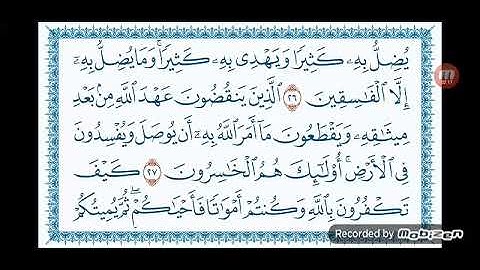 يُضِلُّ بِهِۦ كَثِيرًا وَيَهْدِى بِهِۦ كَثِيرًا ۚ وَمَا يُضِلُّ بِهِۦٓ
إِلَّا ٱلْفَـٰسِقِينَ ٢٦ ٱلَّذِينَ يَنقُضُونَ عَهْدَ ٱللَّهِ مِنۢ بَعْدِ
مِيثَـٰقِهِۦ وَيَقْطَعُونَ مَآ أَمَرَ ٱللَّهُ بِهِۦٓ أَن يُوصَلَ وَيُفْسِدُونَ
فِى ٱلْأَرْضِ ۚ أُو۟لَـٰٓئِكَ هُمُ ٱلْخَـٰسِرُونَ ٢٧ كَيْفَ
تَكْفُرُونَ بِٱللَّهِ وَكُنتُمْ أَمْوَٰتًا فَأَحْيَـٰكُمْ ۖ ثُمَّ يُمِيتُكُمْ
Recorded by Mobizen